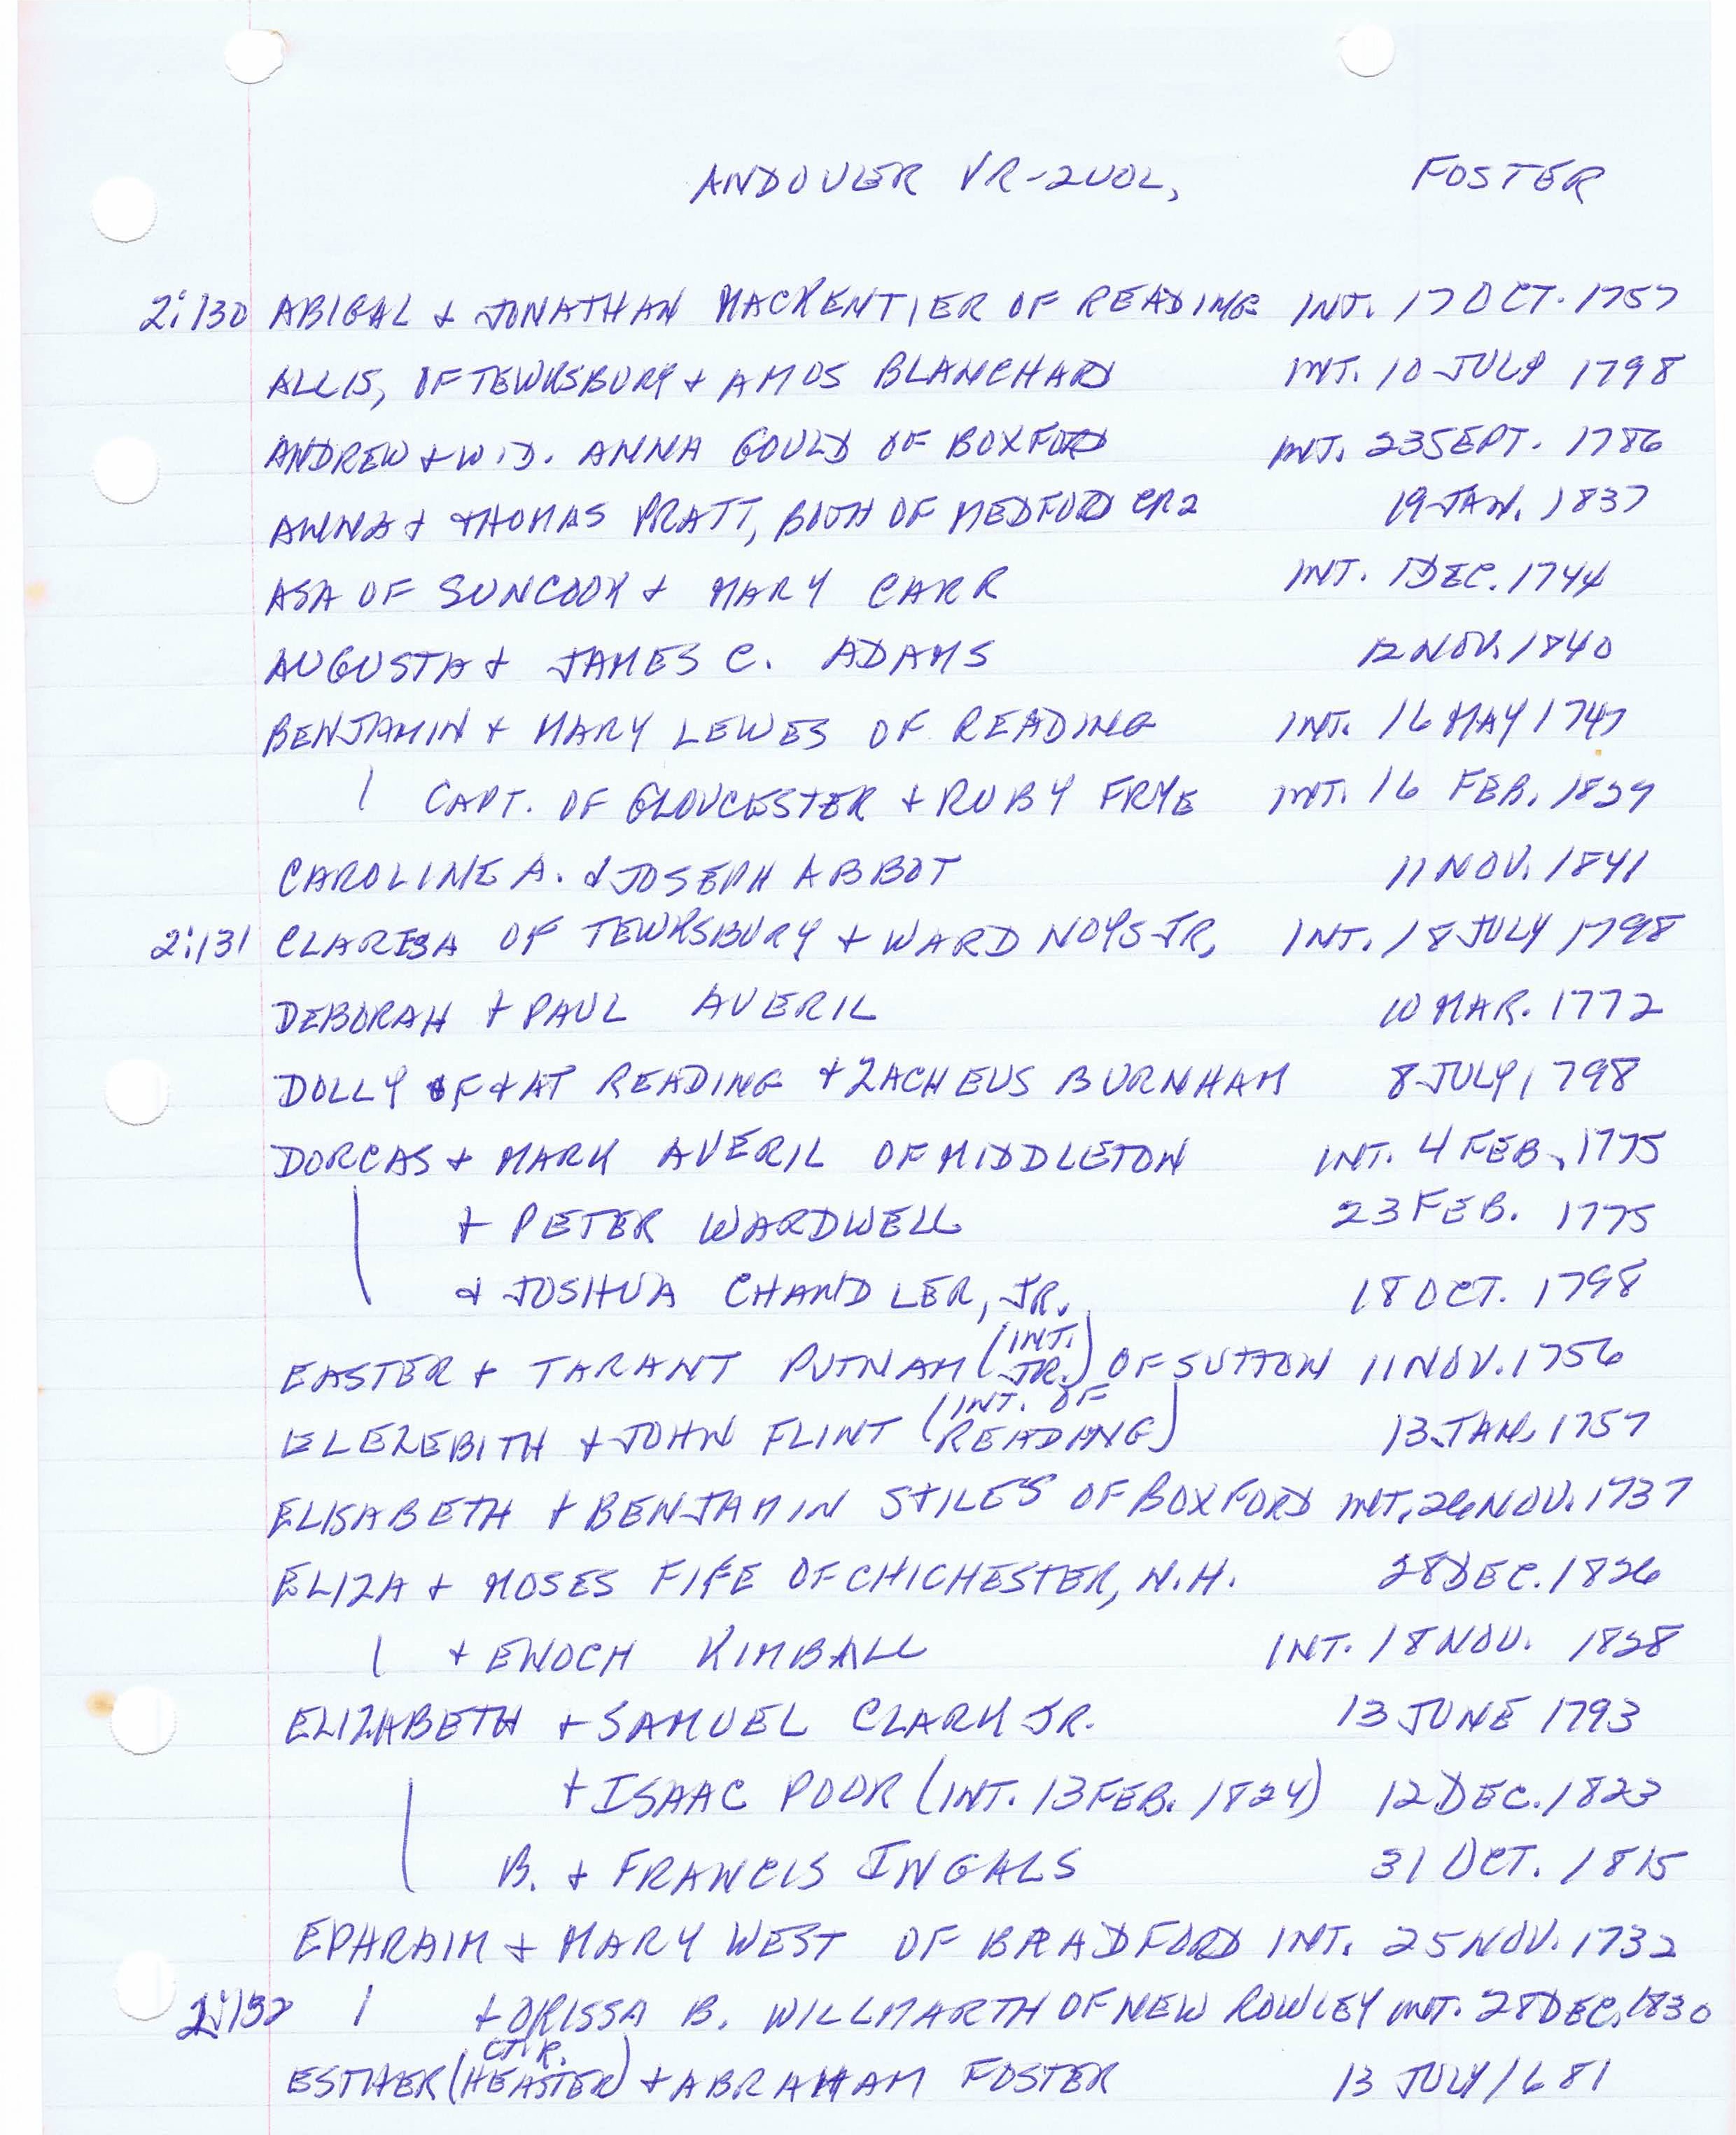 ANDOVER VR-2VOL, FOSTER
2:130 ABIGAL & JONATHAN MACKENTIER OF READING INT. 17 OCT. 1757
ALLIS, OF TEWKSBURY & AMOS BLANCHARD INT. 10 JULY 1798
ANDREW & WID. ANNA GOULD OF BOXFORD INT. 23 SEPT. 1786
ANNA & THOMAS PRATT, BOTH OF MEDFORD CR2 19 JAN. 1837
ASA OF SUNCOOK & MARY CARR INT. 1 DEC. 1744
AUGUSTA & JAMES C. ADAMS 12 NOV. 1840
BENJAMIN & MARY LEWES OF READING INT. 16 MAY 1747
| CAPT. OF GLOUCESTER & RUBY FRYE INT. 16 FEB. 1829
CAROLINE A. & JOSEPH ABBOT 11 NOV. 1841
2:131 CLARISA OF TEWKSBURY & WARD NOYS JR, INT. 18 JULY 1798
DEBORAH & PAUL AVERIL 10 MAR. 1772
DOLLY OF & AT READING & ZACHEUS BURNHAM 8 JULY 1798
DORCAS & MARK AVERIL OF MIDDLETON INT. 4 FEB. 1775
| & PETER WARDWELL 23 FEB. 1775
& JOSHUA CHANDLER, JR. 18 OCT. 1798
EASTER & TARANT PUTNAM (INT. JR.) OF SUTTON 11 NOV. 1756
ELEZEBITH & JOHN FLINT (INT. OF READING) 13 JAN. 1757
ELISABETH & BENJAMIN STILES OF BOXFORD INT. 26 NOV. 1737
ELIZA & MOSES FIFE OF CHICHESTER, N.H. 28 DEC. 1826
| & ENOCH KIMBALL INT. 18 NOV. 1828
ELIZABETH & SAMUEL CLARK JR. 13 JUNE 1793
| & ISAAC POOR (INT. 13 FEB. 1824) 12 DEC. 1823
B. & FRANCIS INGALS 31 OCT. 1815
EPHRAIM & MARY WEST OF BRADFORD INT. 25 NOV. 1732
2:132 | & ORISSA B. WILLMARTH OF NEW ROWLEY INT. 28 DEC. 1830
ESTHER (HEASTER CT. R.) & ABRAHAM FOSTER 13 JULY 1681